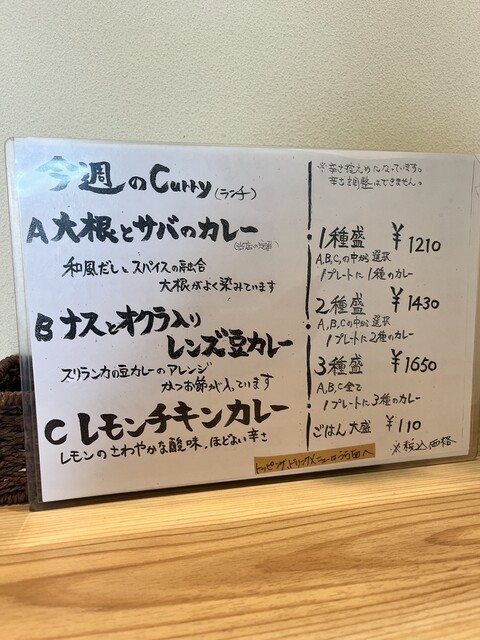 今週のCurry(ランチ)
A 大根とサバのカレー
(当店の定番)
和風だしとスパイスの融合
大根がよく染みています
B ナスとオクラ入り
レンズ豆カレー
スリランカの豆カレーのアレンジ
かつお節が入っています
C レモンチキンカレー
レモンのさわやかな酸味、ほどよい辛さ
※辛さ控えめになっています。
辛さ調整はできません。
1種盛 ¥1210
A,B,Cの中から選択
1プレートに1種のカレー
2種盛 ¥1430
A,B,Cの中から選択
1プレートに2種のカレー
3種盛 ¥1650
A,B,C全て
1プレートに3種のカレー
ごはん大盛 ¥110
※税込価格
トッピング、ドリンクメニューはうら面へ